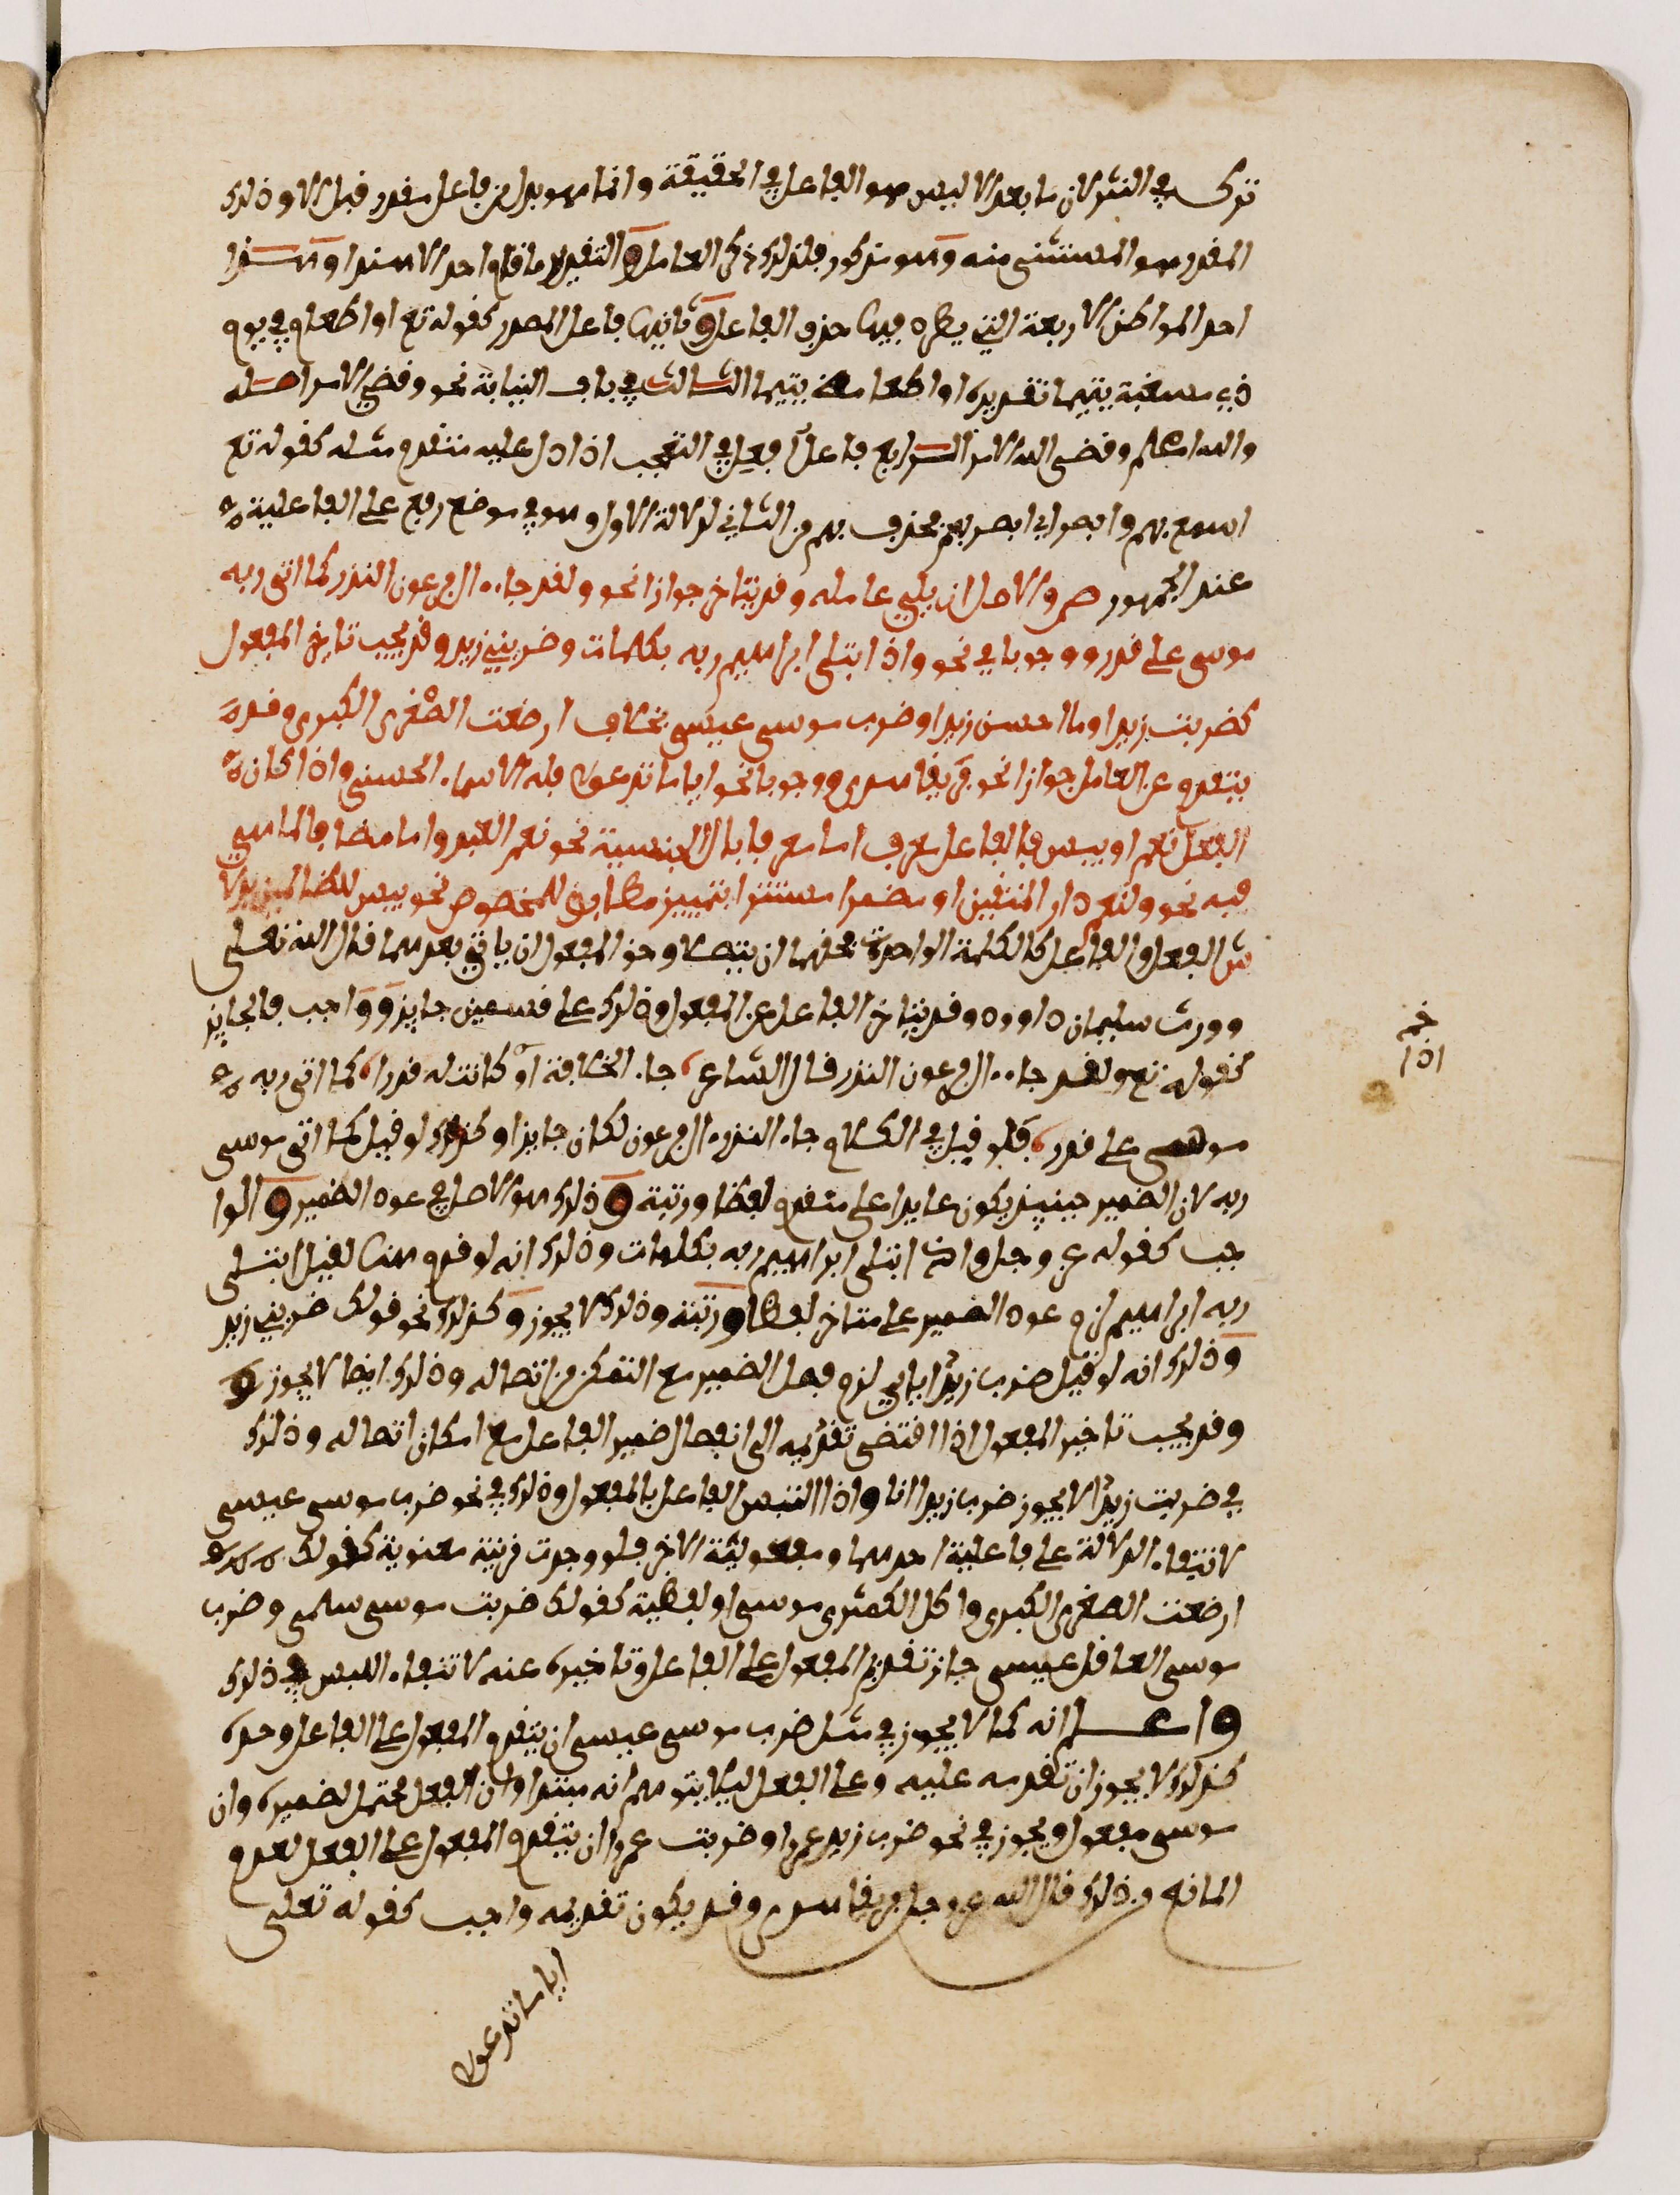 ترك في النثر لان ما بعد الا ليس هو الفاعل في الحقيقة وانما هو بدل من فاعل مقدر قبل الا وذلك
المقدر هو المستثنى منه وهو مذكور فلذلك ذكر العامل والتقدير ما قام احد الا هند وهذا
احد المواطن الاربعة التي يطرد فيها حذف الفاعل وثانيها فاعل المصدر كقوله تع او اطعام في يوم
ذي مسغبة يتيما تقديره او اطعامه يتيما الثالث في باب النيابة نحو وقضي الامر اصله
والله اعلم وقضى الله الامر الرابع فاعل أفعل في التعجب اذا دل عليه متقدم مثله كقوله تع
اسمع بهم وابصر اي ابصر بهم فحذف بهم من الثاني لدلالة الاول وهو في موضع رفع على الفاعلية
عند الجمهور ص والاصل ان يلي عامله وقد يتاخر جوازا نحو ولقد جاء ال فرعون النذر كما اتى ربه
موسى على قدر ووجوبا في نحو واذ ابتلى ابراهيم ربه بكلمات وضربني زيد وقد يجب تاخير المفعول
كضربت زيدا وما احسن زيدا وضرب موسى عيسى بخلاف ارضعت الصغرى الكبرى وقد
يتقدم عن العامل جوازا نحو فريقا هدى ووجوبا نحو ايا ما تدعوا فله الاسماء الحسنى واذا كان
الفعل نعم او بيس فالفاعل معرف اما معرف بال الجنسية نحو نعم العبد واما مضاف لما هي
فيه نحو ولنعم دار المتقين او مضمر مستتر بتمييز مطابق للمخصوص نحو بيس للظالمين بدلا
ش الفعل والفاعل كالكلمة الواحدة فحقهما ان يتصلا وحق المفعول ان ياتي بعدهما قال الله تعلى
وورث سليمان داوود وقد يتاخر الفاعل عن المفعول وذلك على قسمين جايز وواجب فالجايز
كقوله تع ولقد جاء ال فرعون النذر قال الشاعر جاء الخلافة او كانت له قدرا كما اتى ربه
موسى على قدر فلو قيل في الكلام جاء النذر ال فرعون لكان جايزا وكذلك لو قيل كما اتى موسى
ربه لان الضمير حينيذ يكون عايدا على متقدم لفظا ورتبة وذلك هو الاصل في عود الضمير والوا
جب كقوله عز وجل واذ ابتلى ابراهيم ربه بكلمات وذلك انه لو قدم هنا لقيل ابتلى
ربه ابراهيم لزم عود الضمير على متاخر لفظا ورتبة وذلك لا يجوز وكذلك نحو قولك ضربني زيد
وذلك انه لو قيل ضرب زيد اياي لزم فصل الضمير مع التمكن من اتصاله وذلك ايضا لا يجوز
وقد يجب تاخير المفعول اذا اقتضى تقديمه الى انفصال ضمير الفاعل مع امكان اتصاله وذلك
في ضربت زيدا لا يجوز ضرب زيدا انا واذا التبس الفاعل بالمفعول وذلك في نحو ضرب موسى عيسى
لانتفاء الدلالة على فاعلية احدهما ومفعولية الاخر فلو وجدت قرينة معنوية كقولك
ارضعت الصغرى الكبرى واكل الكمثرى موسى او لفظية كقولك ضربت موسى سلمى وضرب
موسى العاقل عيسى جاز تقديم المفعول على الفاعل وتاخيره عنه لانتفاء اللبس في ذلك
واعلم انه كما لا يجوز في مثل ضرب موسى عيسى ان يتقدم المفعول على الفاعل وحده
كذلك لا يجوز ان تقدمه عليه وعلى الفعل ليلا يتوهم انه مبتدا وان الفعل محتمل لضميره وان
موسى مفعول ويجوز في نحو ضرب زيد عمرا وضربت عمرا ان يتقدم المفعول على الفعل لعدم
المانع من ذلك قال الله عز وجل فريقا هدى وقد يكون تقديمه واجب كقوله تعلى
ايا ما تدعوا
اذا